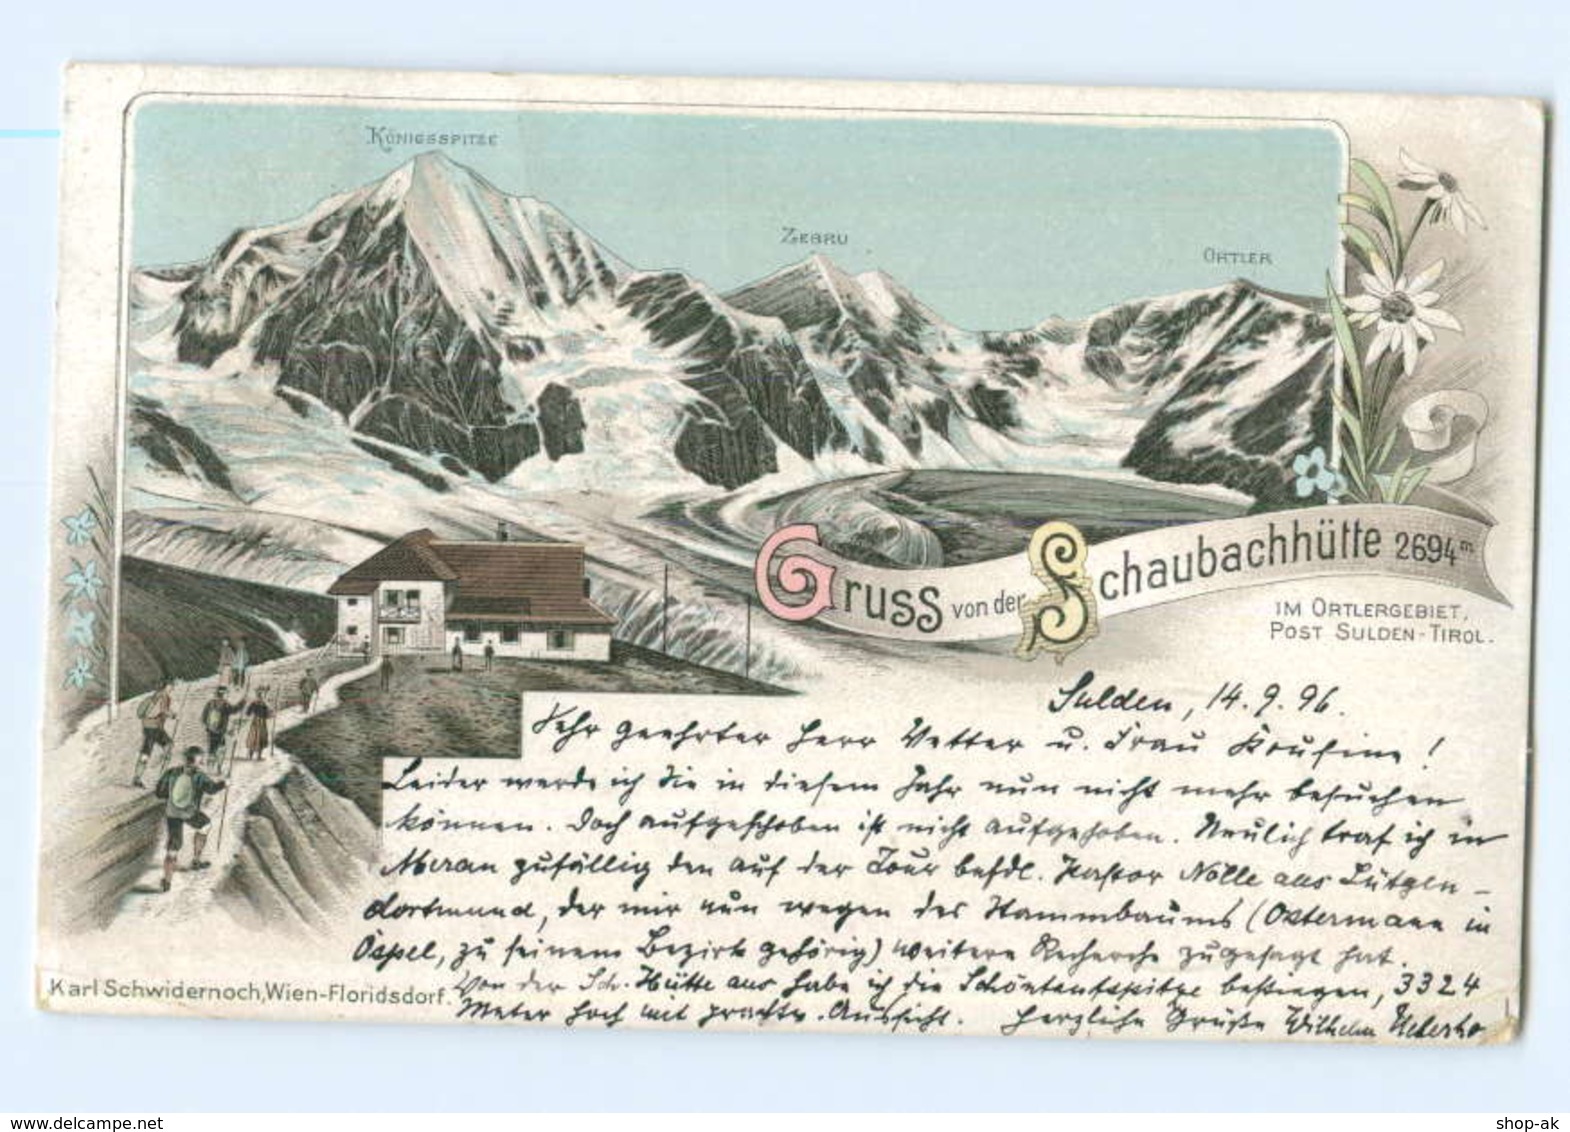 KÖNIGSSPITZE
ZEBRU
ORTLER
GRUSS von der SCHAUBACHHÜTTE 2694 m.
IM ORTLERGEBIET,
POST SULDEN-TIROL.
Sulden, 14.9.96.
Sehr geehrter Herr Vetter u. Frau Kousine!
Leider werde ich Sie in diesem Jahr nun nicht mehr besuchen
können. Doch aufgeschoben ist nicht aufgehoben. Neulich traf ich in
Meran zufällig den auf der Tour befdl. Pastor Nölle aus Lütgen-
dortmund, der mir nun wegen des Stammbaums (Ostermann in
Öspel, zu seinem Bezirk gehörig) weitere Recherche zugesagt hat.
Von der Sch. Hütte aus habe ich die Schöntaufspitze bestiegen, 3324
Meter hoch mit prachtv. Aussicht. Herzliche Grüße Wilhelm
Karl Schwidernoch, Wien-Floridsdorf.
www.delcampe.net
shop-ak